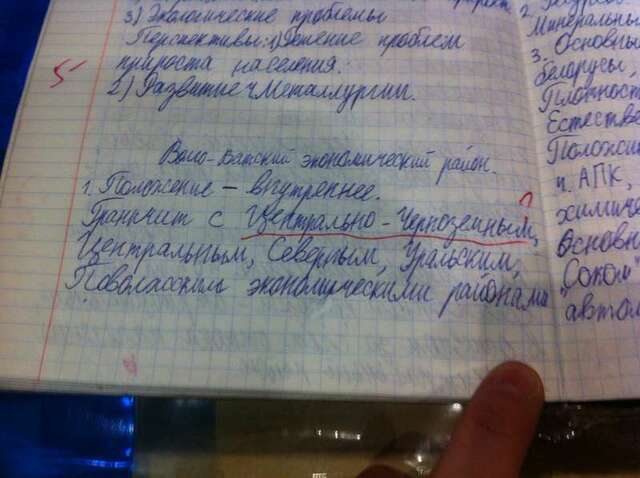 3) Экологические проблемы
Перспективы: 1) Решение проблем
прироста населения.
2) Развитие Металлургии.
5
Волго-Вятский экономический район.
1. Положение – внутреннее.
Граничит с Центрально-Черноземным,
Центральным, Северным, Уральским,
Поволжским экономическими районами
2.
Минеральны
3. Основны
беларусы,
Плотност
Естестве
Положит
ч. АПК,
химиче
Основн
"Сокол"
автом